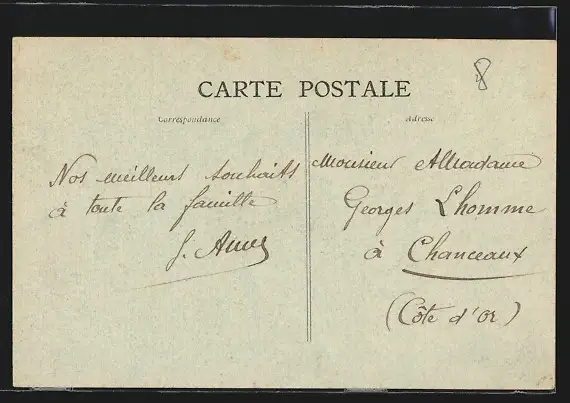 8
CARTE POSTALE
Correspondance
Adresse
Nos meilleurs souhaits
à toute la famille
J.
Monsieur et Madame
Georges Lhomme
à Chanceaux
(Côte d'Or)